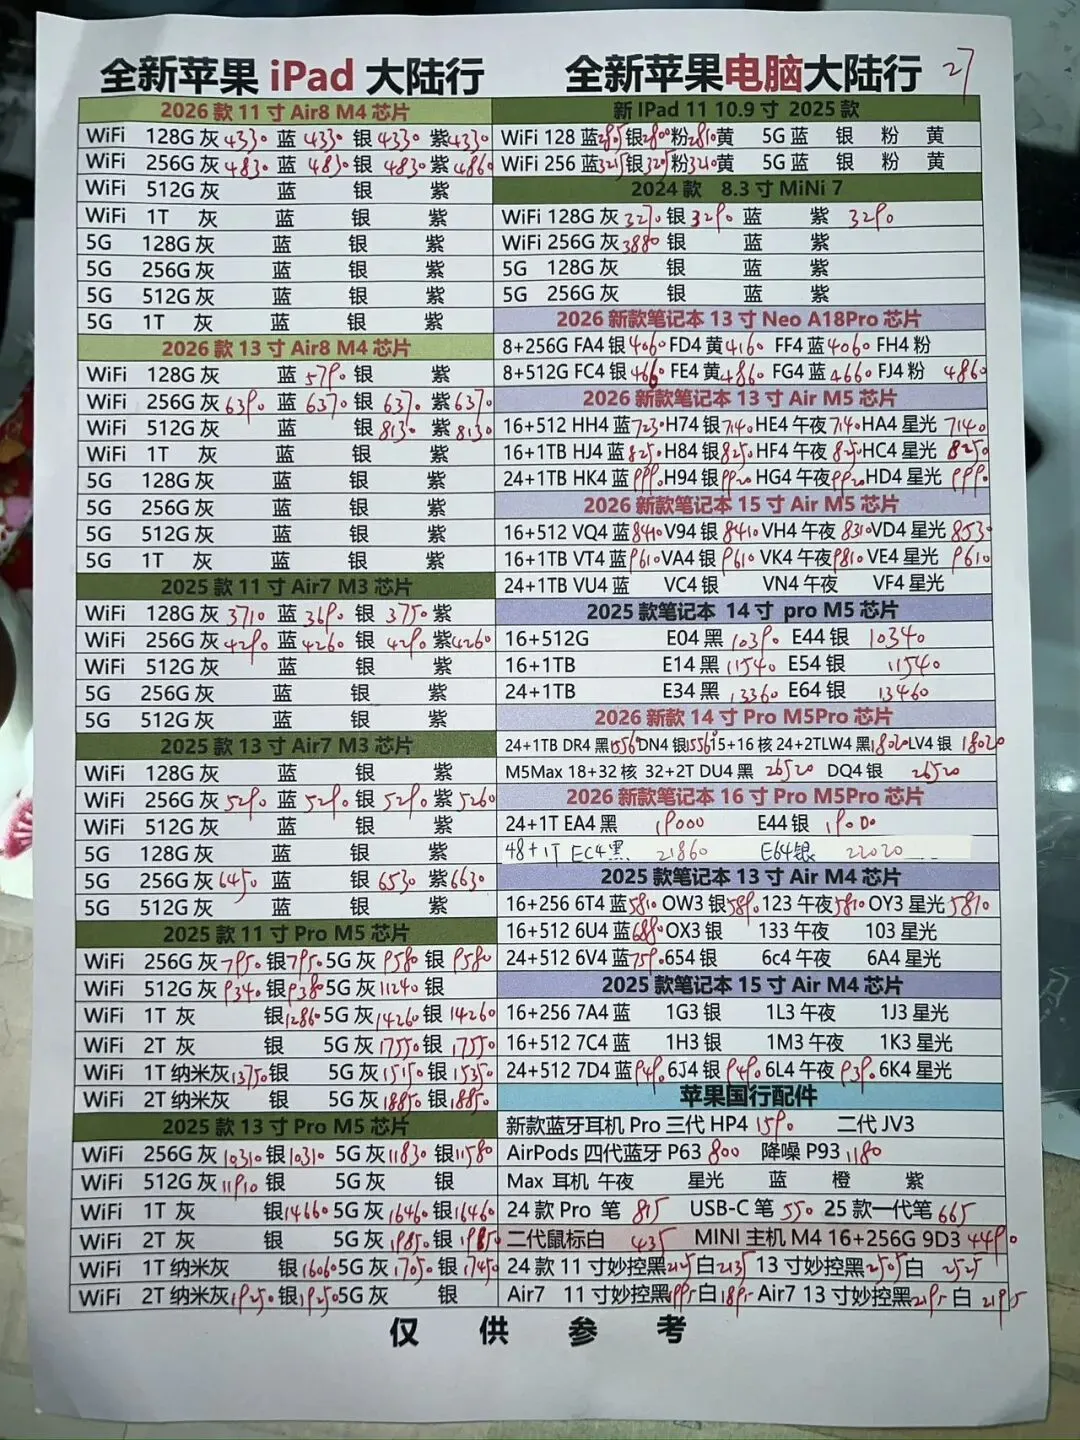 全新苹果 iPad 大陆行
2026 款 11 寸 Air8 M4 芯片
WiFi 128G 灰 4330 蓝 4330 银 4330 紫 4330
WiFi 256G 灰 4830 蓝 4830 银 4830 紫 4860
WiFi 512G 灰 蓝 银 紫
WiFi 1T 灰 蓝 银 紫
5G 128G 灰 蓝 银 紫
5G 256G 灰 蓝 银 紫
5G 512G 灰 蓝 银 紫
5G 1T 灰 蓝 银 紫
2026 款 13 寸 Air8 M4 芯片
WiFi 128G 灰 蓝 5790 银 紫
WiFi 256G 灰 6390 蓝 6370 银 6370 紫 6370
WiFi 512G 灰 蓝 银 8130 紫 8130
WiFi 1T 灰 蓝 银 紫
5G 128G 灰 蓝 银 紫
5G 256G 灰 蓝 银 紫
5G 512G 灰 蓝 银 紫
5G 1T 灰 蓝 银 紫
2025 款 11 寸 Air7 M3 芯片
WiFi 128G 灰 3710 蓝 3690 银 3750 紫
WiFi 256G 灰 4290 蓝 4260 银 4290 紫 4260
WiFi 512G 灰 蓝 银 紫
5G 256G 灰 蓝 银 紫
5G 512G 灰 蓝 银 紫
2025 款 13 寸 Air7 M3 芯片
WiFi 128G 灰 蓝 银 紫
WiFi 256G 灰 5290 蓝 5290 银 5290 紫 5260
WiFi 512G 灰 蓝 银 紫
5G 128G 灰 蓝 银 紫
5G 256G 灰 6450 蓝 银 6530 紫 6630
5G 512G 灰 蓝 银 紫
2025 款 11 寸 Pro M5 芯片
WiFi 256G 灰 7950 银 7950 5G 灰 9580 银 9580
WiFi 512G 灰 9340 银 9380 5G 灰 11240 银
WiFi 1T 灰 银 12860 5G 灰 14260 银 14260
WiFi 2T 灰 银 5G 灰 17550 银 17550
WiFi 1T 纳米灰 13750 银 5G 灰 15150 银 15350
WiFi 2T 纳米灰 银 5G 灰 18850 银 18850
2025 款 13 寸 Pro M5 芯片
WiFi 256G 灰 10310 银 10310 5G 灰 11830 银 11580
WiFi 512G 灰 11910 银 5G 灰 银
WiFi 1T 灰 银 14660 5G 灰 16460 银 16460
WiFi 2T 灰 银 5G 灰 19850 银
WiFi 1T 纳米灰 银 16060 5G 灰 17050 银 17450
WiFi 2T 纳米灰 19250 银 19250 5G 灰 银
全新苹果电脑大陆行 27
新 IPad 11 10.9 寸 2025 款
WiFi 128 蓝 2805 银 2800 粉 2810 黄 5G 蓝 银 粉 黄
WiFi 256 蓝 3215 银 3205 粉 3210 黄 5G 蓝 银 粉 黄
2024 款 8.3 寸 MiNi 7
WiFi 128G 灰 3270 银 3290 蓝 紫 3290
WiFi 256G 灰 3880 银 蓝 紫
5G 128G 灰 银 蓝 紫
5G 256G 灰 银 蓝 紫
2026 新款笔记本 13 寸 Neo A18Pro 芯片
8+256G FA4 银 4060 FD4 黄 4160 FF4 蓝 4060 FH4 粉
8+512G FC4 银 4660 FE4 黄 4860 FG4 蓝 4660 FJ4 粉 4860
2026 新款笔记本 13 寸 Air M5 芯片
16+512 HH4 蓝 7230 H74 银 7140 HE4 午夜 7140 HA4 星光 7140
16+1TB HJ4 蓝 8250 H84 银 8250 HF4 午夜 8250 HC4 星光 8250
24+1TB HK4 蓝 9990 H94 银 9920 HG4 午夜 9920 HD4 星光 9990
2026 新款笔记本 15 寸 Air M5 芯片
16+512 VQ4 蓝 8410 V94 银 8410 VH4 午夜 8310 VD4 星光 8530
16+1TB VT4 蓝 9610 VA4 银 9610 VK4 午夜 9810 VE4 星光 9610
24+1TB VU4 蓝 VC4 银 VN4 午夜 VF4 星光
2025 款笔记本 14 寸 pro M5 芯片
16+512G E04 黑 10390 E44 银 10340
16+1TB E14 黑 11540 E54 银 11540
24+1TB E34 黑 13360 E64 银 13460
2026 新款 14 寸 Pro M5Pro 芯片
24+1TB DR4 黑 15560 DN4 银 15560 15+16 核 24+2TLW4 黑 18020 LV4 银 18020
M5Max 18+32 核 32+2T DU4 黑 26520 DQ4 银 26520
2026 新款笔记本 16 寸 Pro M5Pro 芯片
24+1T EA4 黑 19000 E44 银 19000
48+1T EC4黑 21860 E64银 22020
2025 款笔记本 13 寸 Air M4 芯片
16+256 6T4 蓝 5810 OW3 银 5890 123 午夜 5810 OY3 星光 5810
16+512 6U4 蓝 6880 OX3 银 133 午夜 103 星光
24+512 6V4 蓝 7590 654 银 6c4 午夜 6A4 星光
2025 款笔记本 15 寸 Air M4 芯片
16+256 7A4 蓝 1G3 银 1L3 午夜 1J3 星光
16+512 7C4 蓝 1H3 银 1M3 午夜 1K3 星光
24+512 7D4 蓝 9490 6J4 银 9490 6L4 午夜 9390 6K4 星光
苹果国行配件
新款蓝牙耳机 Pro 三代 HP4 1590 二代 JV3
AirPods 四代蓝牙 P63 800 降噪 P93 1180
Max 耳机 午夜 星光 蓝 橙 紫
24 款 Pro 笔 815 USB-C 笔 550 25 款一代笔 665
二代鼠标白 435 MINI 主机 M4 16+256G 9D3 4490
24 款 11 寸妙控黑 2125 白 2135 13 寸妙控黑 2505 白 2525
Air7 11 寸妙控黑 1995 白 1895 Air7 13 寸妙控黑 2195 白 2195
仅 供 参 考